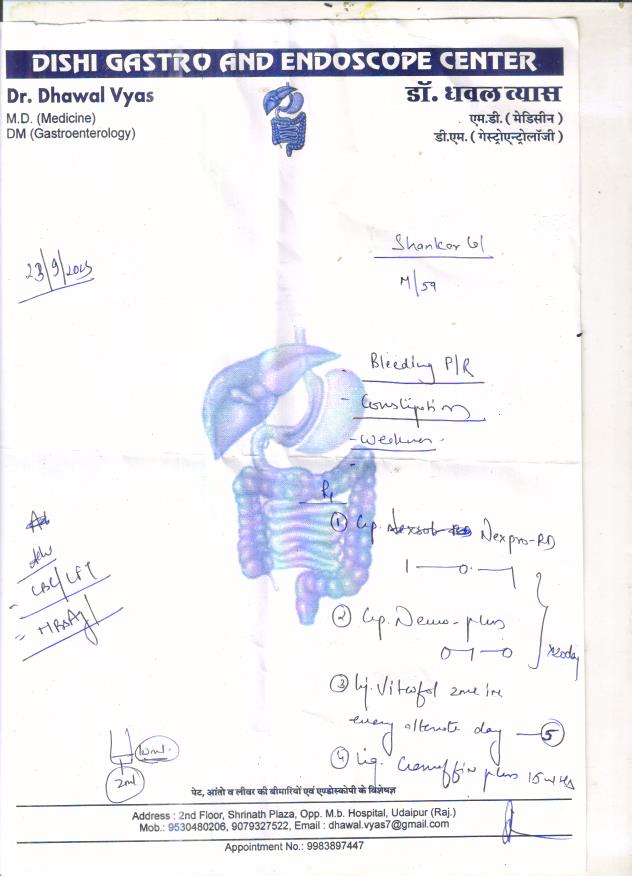 DISHI GASTRO AND ENDOSCOPE CENTER
Dr. Dhawal Vyas
M.D. (Medicine)
DM (Gastroenterology)
डॉ. धवल व्यास
एम.डी. ( मेडिसीन )
डी.एम. ( गेस्ट्रोएन्ट्रोलॉजी )
23/9/2023
Shankar
M/59
Bleeding P/R
- Constipation
- Weakness
Rx
① Cap. Nexpro-RD
1—0—1
② Cap. plus
0—1—0
x20day
③ Inj. Vitcofol 2ml im
every alternate day — ⑤
④ Liq. Cremaffin plus 15ml HS
CBC/LFT
HBsAg
10ml.
2ml
पेट, आंतो व लीवर की बीमारियों एवं एण्डोस्कोपी के विशेषज्ञ
Address : 2nd Floor, Shrinath Plaza, Opp. M.b. Hospital, Udaipur (Raj.)
Mob.: 9530480206, 9079327522, Email : dhawal.vyas7@gmail.com
Appointment No.: 9983897447